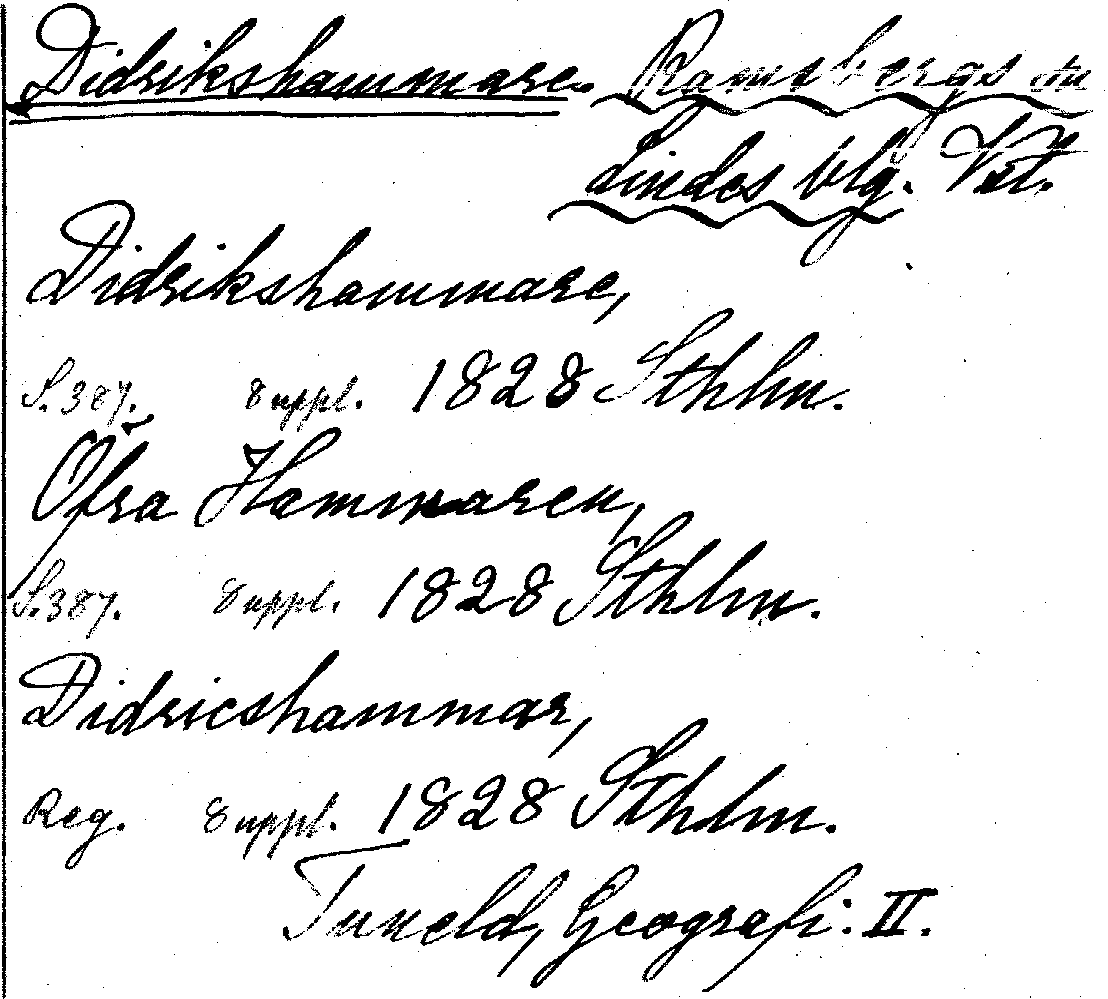 Didrikshammare. Ramsbergs sn
Lindes blg. Vstl.
Didrikshammare,
S. 387. Suppl. 1828 Sthlm.
Öfra Hammaren,
S. 387. Suppl. 1828 Sthlm.
Didricshammar,
Reg. Suppl. 1828 Sthlm.
Tuneld, Geografi. II.